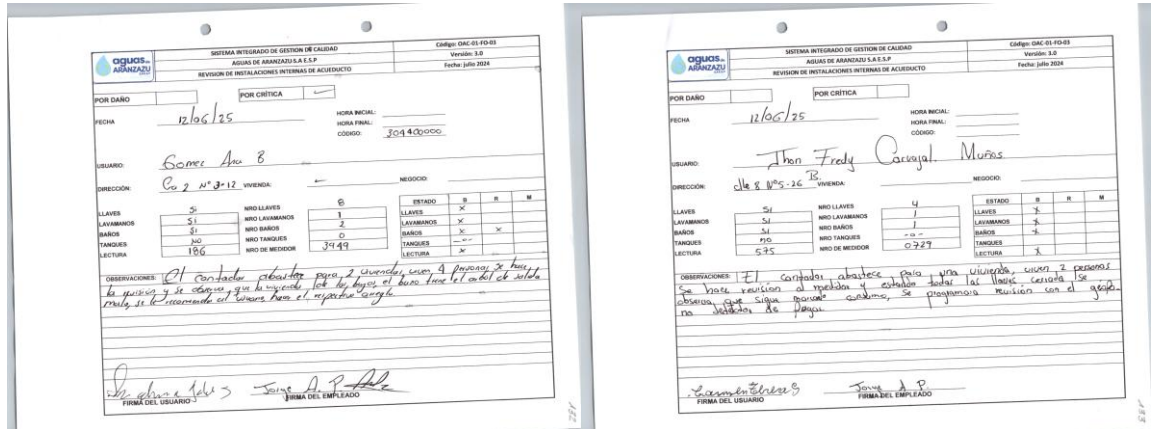 aguas de ARANZAZU
SISTEMA INTEGRADO DE GESTION DE CALIDAD
AGUAS DE ARANZAZU S.A E.S.P
REVISION DE INSTALACIONES INTERNAS DE ACUEDUCTO
Código: OAC-01-FO-03
Versión: 3.0
Fecha: julio 2024
POR DAÑO
POR CRÍTICA
FECHA 12/06/25
HORA INICIAL:
HORA FINAL:
CÓDIGO: 304400000
USUARIO: Gomez Ana B
DIRECCIÓN: Cra 2 Nº 3-12 VIVIENDA: NEGOCIO:
LLAVES Si NRO LLAVES 8
LAVAMANOS Si NRO LAVAMANOS 1
BAÑOS Si NRO BAÑOS 2
TANQUES NO NRO TANQUES 0
LECTURA 186 NRO DE MEDIDOR 3949
ESTADO B R M
LLAVES X
LAVAMANOS X
BAÑOS X X
TANQUES ---
LECTURA X
OBSERVACIONES: El contador abastece para, 2 viviendas, viven 4 personas, se hace
la revisión y se observa, que la vivienda de los bajos, el baño tiene el arbol de salida
malo, se le recomienda al usuario hacer el respectivo arreglo.
Jorge A. P.
FIRMA DEL USUARIO FIRMA DEL EMPLEADO
182
aguas de ARANZAZU
SISTEMA INTEGRADO DE GESTION DE CALIDAD
AGUAS DE ARANZAZU S.A E.S.P
REVISION DE INSTALACIONES INTERNAS DE ACUEDUCTO
Código: OAC-01-FO-03
Versión: 3.0
Fecha: julio 2024
POR DAÑO
POR CRÍTICA
FECHA 12/06/25
HORA INICIAL:
HORA FINAL:
CÓDIGO:
USUARIO: Jhon Fredy Carvajal. Muños
DIRECCIÓN: clle 8 Nº5-26 B. VIVIENDA: NEGOCIO:
LLAVES Si NRO LLAVES 4
LAVAMANOS Si NRO LAVAMANOS 1
BAÑOS Si NRO BAÑOS 1
TANQUES no NRO TANQUES -0-
LECTURA 575 NRO DE MEDIDOR 0729
ESTADO B R M
LLAVES X
LAVAMANOS X
BAÑOS X
TANQUES
LECTURA X
OBSERVACIONES: El contador abastece para una vivienda, viven 2 personas
Se hace revisión al medidor y estando todas las llaves cerrada se
observa, que sigue marcando consumo, se programara revisión con el geofo-
no detector de fugas.
Jorge A. P.
FIRMA DEL USUARIO FIRMA DEL EMPLEADO
183